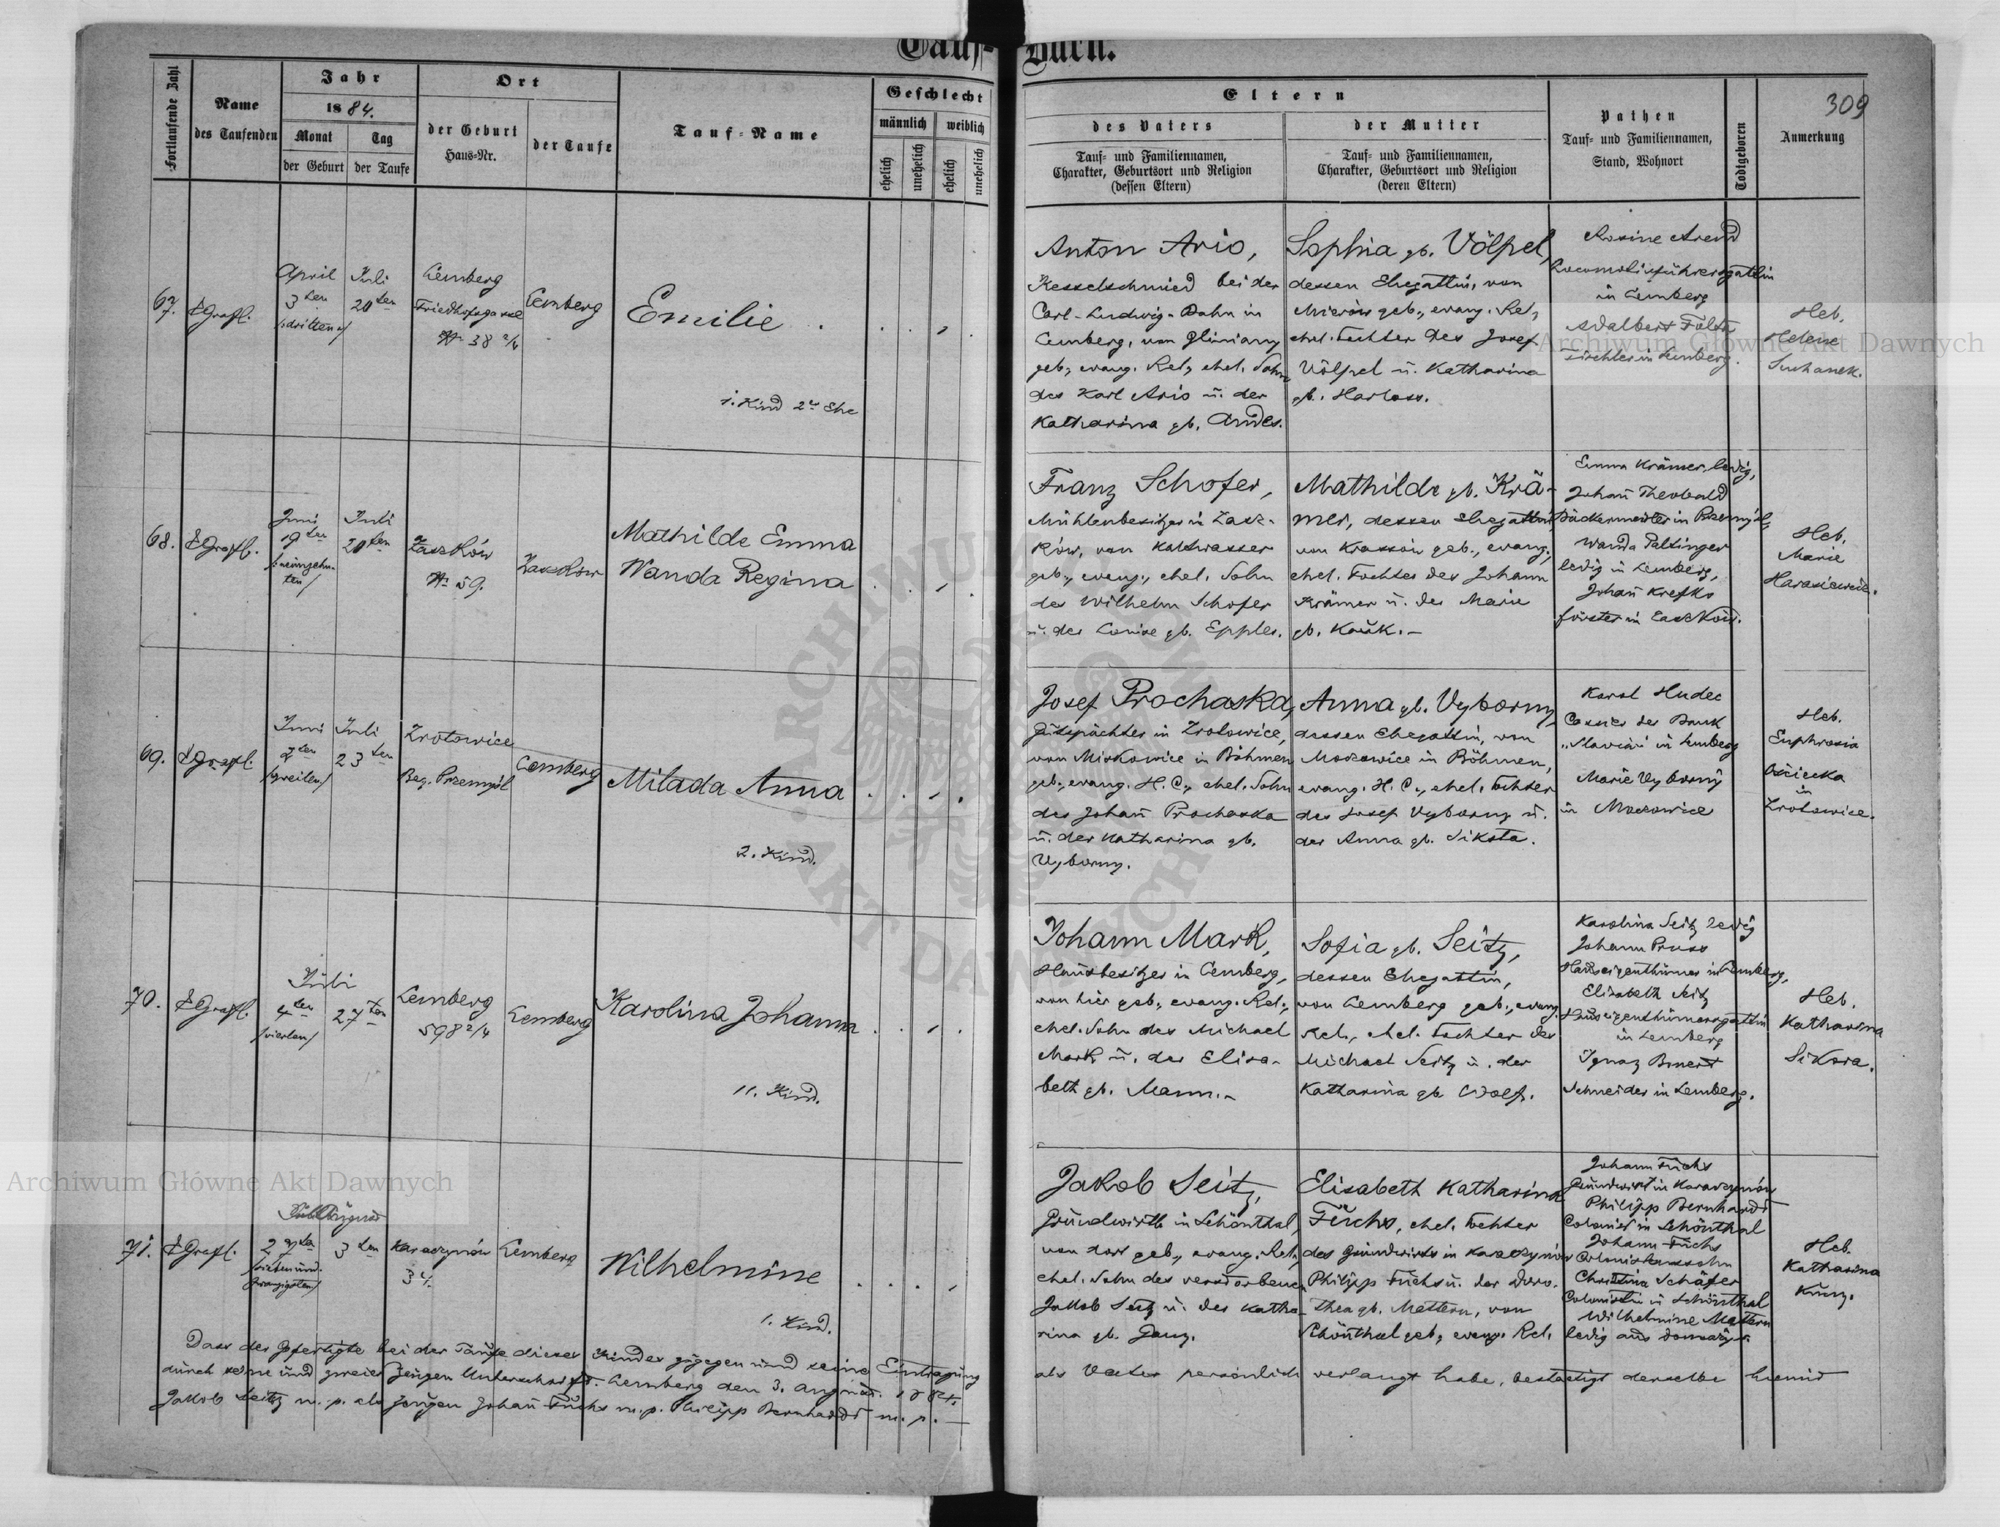 Tauf-Buch.
309
Fortlaufende Zahl
Name
des Taufenden
Jahr
1884.
Monat
der Geburt
Tag
der Taufe
Ort
der Geburt
Haus-Nr.
der Taufe
Tauf-Name
Geschlecht
männlich
weiblich
ehelich
unehelich
ehelich
unehelich
Eltern
des Vaters
Tauf- und Familiennamen,
Charakter, Geburtsort und Religion
(dessen Eltern)
der Mutter
Tauf- und Familiennamen,
Charakter, Geburtsort und Religion
(deren Eltern)
Pathen
Tauf- und Familiennamen,
Stand, Wohnort
Todtgeboren
Anmerkung
67.
April
3ten
/:dritten:/
Juli
20ten
Lemberg
Friedhofsgasse
Nr 38 2/4
Lemberg
Emilie
1. Kind 2r Ehe
Anton Ario,
Kesselschmied bei der
Carl-Ludwig-Bahn in
Lemberg, von Gliniany
geb., evang. Rel., ehel. Sohn
des Karl Ario u. der
Katharina gb. Andes.
Sophia gb. Völpel,
dessen Ehegattin, von
Mierów geb., evang. Rel.,
ehel. Tochter des Josef
Völpel u. Katharina
gb. Harloss.
Rosine Arend
Locomotivführersgattin
in Lemberg
Adalbert
Tischler in Lemberg.
Heb.
Helene
Suchanek.
68.
Juni
19ten
/neunzehn-
ten/
Juli
20ten
Zaszków
Nr 59.
Zaszków
Mathilde Emma
Wanda Regina
Franz Schofer,
Mühlenbesitzer in Zasz-
ków, von Kaltwasser
geb., evang., ehel. Sohn
des Wilhelm Schofer
u. der Louise gb. Epples.
Mathilde gb. Krä-
mer, dessen Ehegattin
von Krassów geb., evang.,
ehel. Tochter des Johann
Krämer u. der Marie
gb.
Emma Krämer, ledig,
Johann Theobald
Bäckermeister in Przemyśl,
Wanda Paltinger
ledig in Lemberg,
Johann Krefks
Förster in Zaszków.
Heb.
Marie
69.
Juni
2ten
/zweiten/
Juli
23ten
Zrotowice
Bez. Przemyśl
Lemberg
Milada Anna
2. Kind.
Josef Prochaska,
Gutspächter in Zrotowice,
von Mirkowice in Böhmen
geb., evang. H. C., ehel. Sohn
des Johann Prochaska
u. der Katharina gb.
Vyborny.
Anna gb. Vyborny,
dessen Ehegattin, von
Mozowice in Böhmen,
evang. H. C., ehel. Tochter
des Josef Vyborny u.
der Anna gb. Siksta.
Karol Hudec
Cassier der Bank
in Lemberg
Marie Vyborny
in Mozowice
Heb.
Euphrosia
in
Zrotowice.
70.
Juli
4ten
/vierten/
27ten
Lemberg
598 2/4
Lemberg
Karolina Johanna
11. Kind.
Johann Mark,
Hausbesitzer in Lemberg,
von hier geb., evang. Rel.,
ehel. Sohn des Michael
Mark u. der Elisa-
beth gb. Mann.
Sofia gb. Seitz,
dessen Ehegattin,
von Lemberg geb., evang.
Rel., ehel. Tochter des
Michael Seitz u. der
Katharina gb. Wolf.
Karolina Seitz ledig
Johann Pruss
Hauseigenthümer in Lemberg,
Elisabeth Seitz
Hauseigenthümersgattin
in Lemberg
Ignaz
Schneider in Lemberg.
Heb.
Katharina
Sikora.
71.
Juli
27ten
/siebenund-
zwanzigsten/
August
3ten
Karaczynów
34.
Lemberg
Wilhelmine
1. Kind.
Jakob Seitz,
Grundwirth in Schönthal,
von dort geb., evang. Rel.,
ehel. Sohn des verstorbenen
Jakob Seitz u. der Katha-
rina gb. Ganz.
Elisabeth Katharina
Fuchs, ehel. Tochter
des Grundwirths in Karaczynów
Philipp Fuchs u. der Doro-
thea gb. Mettern, von
Schönthal geb., evang. Rel.
Johann Fuchs
Grundwirt in Karaczynów
Philipp Bernhardt
Colonist in Schönthal
Johann Fuchs
Colonistenssohn
Christina Schäfer
Colonistin in Schönthal
Wilhelmine Mattern
ledig aus
Heb.
Katharina
Kunz.
Dass der Gefertigte bei der Taufe dieses Kindes zugegen und seine Eintragung als Vater persönlich verlangt habe, bestaetigt derselbe hiemit
durch seine und zweier Zeugen Unterschrift. Lemberg den 3. August 1884.
Jakob Seitz m. p. als Zeugen Johann Fuchs m. p. Philipp Bernhardt m. p.
Archiwum Główne Akt Dawnych
Archiwum Główne Akt Dawnych
ARCHIWUM GŁÓWNE AKT DAWNYCH